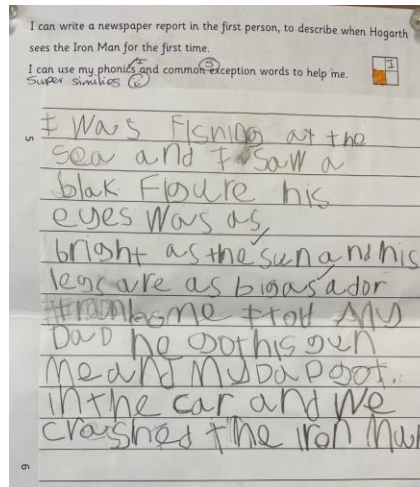 I can write a newspaper report in the first person, to describe when Hogarth
sees the Iron Man for the first time.
I can use my phonics and common exception words to help me.
super similies
I was Fishing at the
sea and I saw a
blak Figure his
eyes was as
bright as the sun and his
legs are as big as a dor
I ran home I told My
DaD he got his gun
me and My DaD got
in the car and we
crashed the iron man